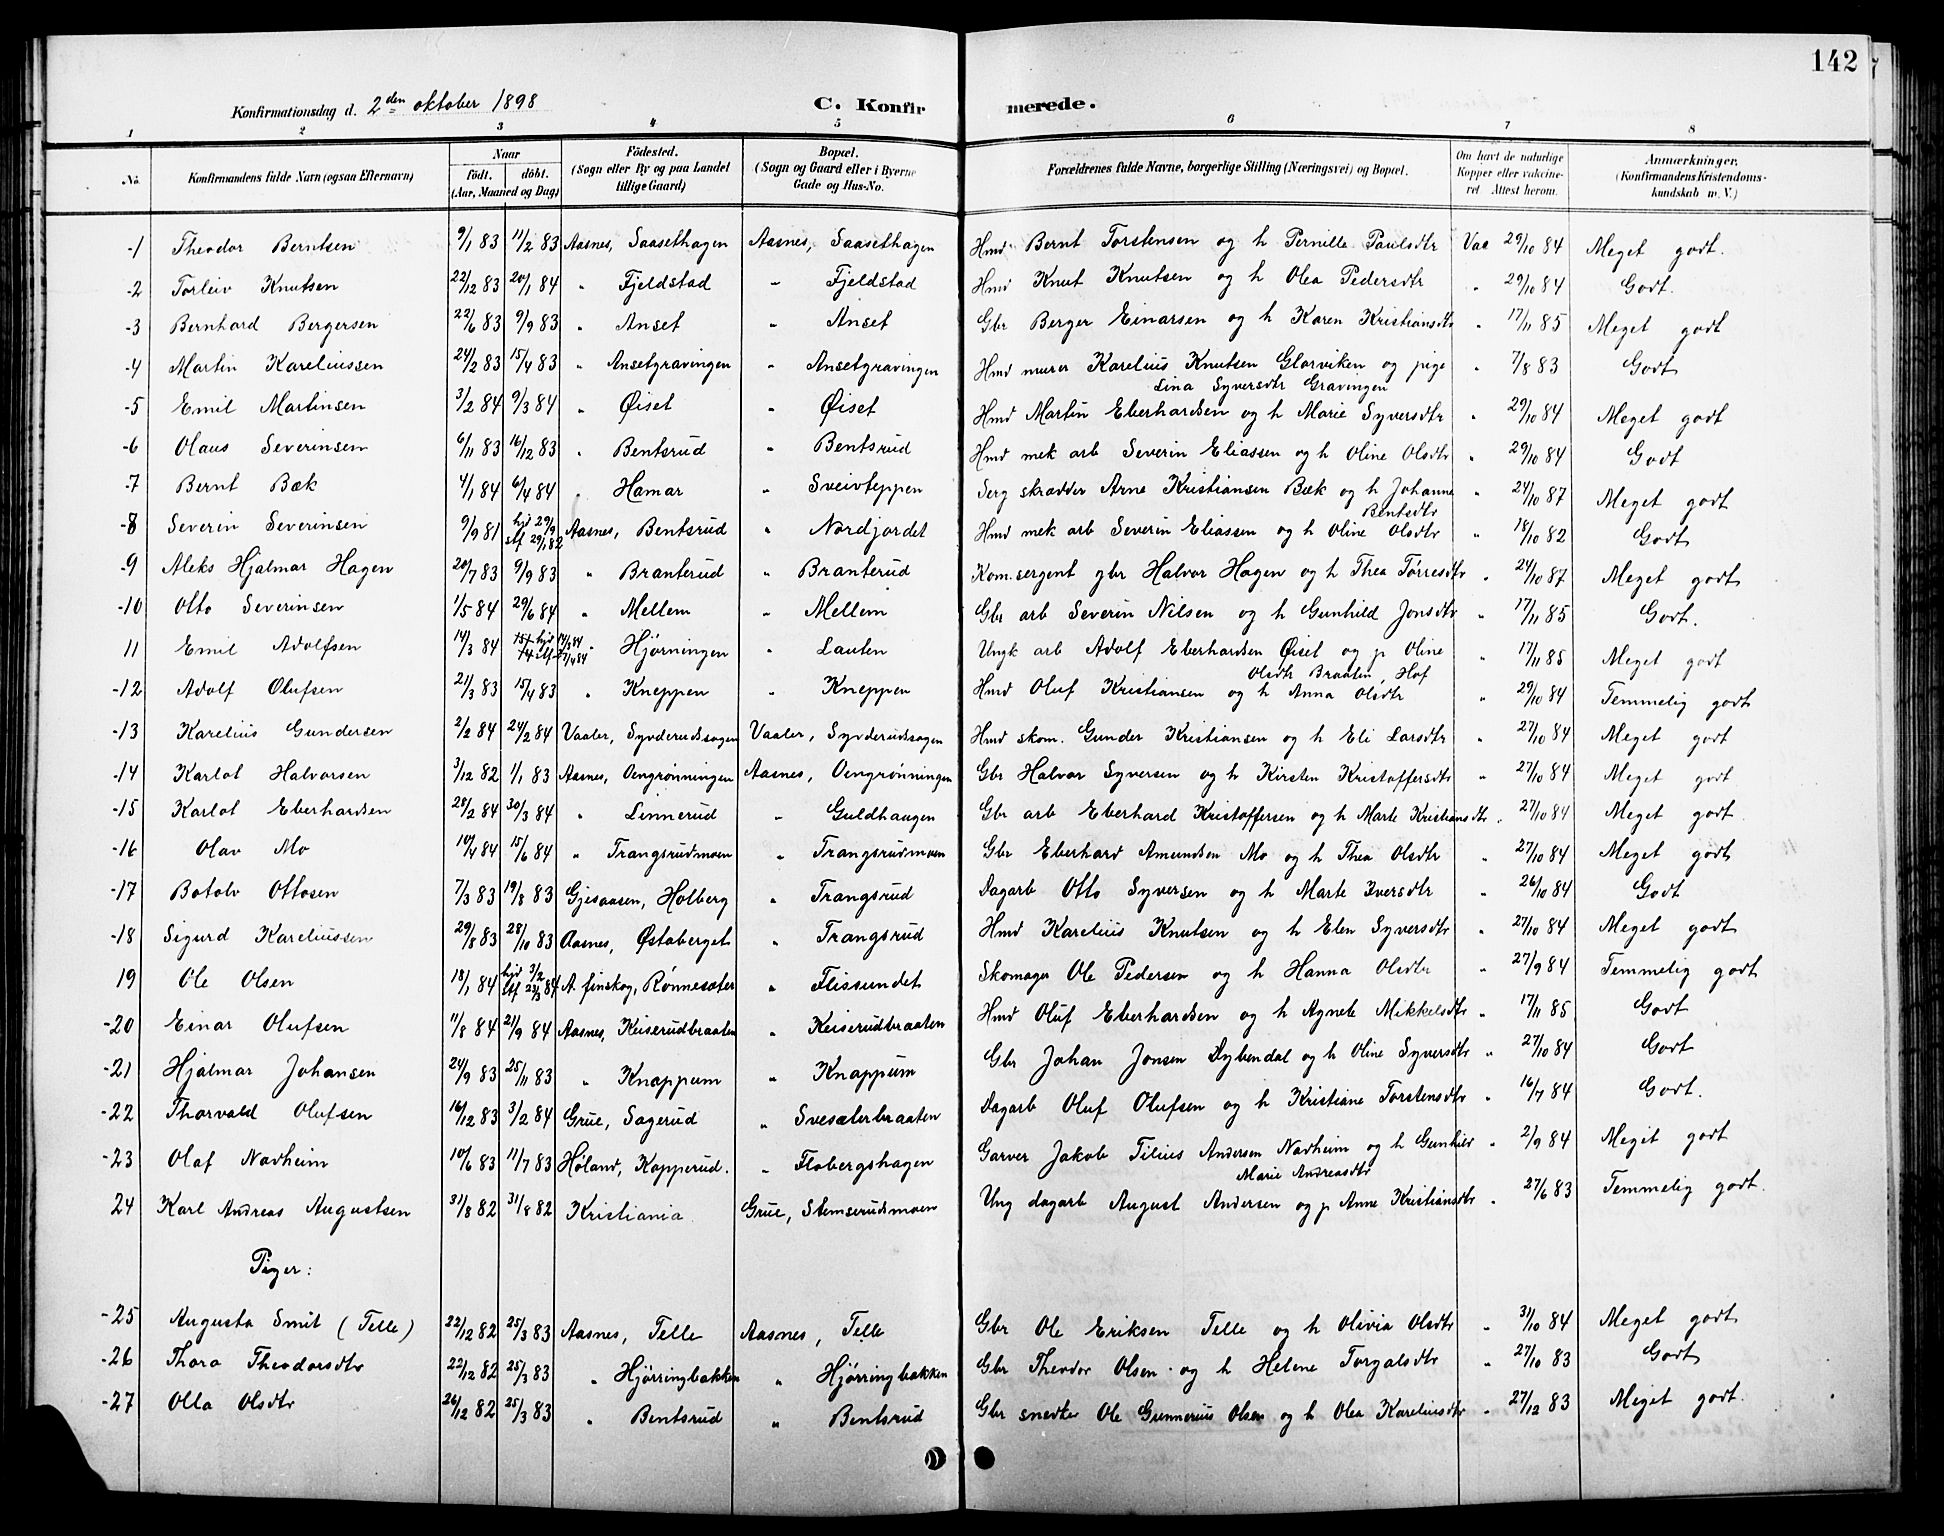 142
Konfirmationsdag d. 2den oktober 1898 C. Konfirmerede.
1 2 3 4 5 6 7 8
No. Konfirmandens fulde Navn (ogsaa Efternavn) Naar födt. döbt. (Aar, Maaned og Dag) Födested. (Sogn eller By og paa Landet tillige Gaard) Bopæl. (Sogn og Gaard eller i Byerne Gade og Hus-No. Forældrenes fulde Navne, borgerlige Stilling (Næringsvei) og Bopæl. Om havt de naturlige Kopper eller vakcineret. Attest herom. Anmærkninger. (Konfirmandens Kristendomskundskab m. V.)
-1 Theodor Berntsen 9/1 83 11/2 83 Aasnes, Saasethagen Aasnes, Saasethagen Hmd Bernt Torstensen og h Pernille Paulsdtr Vac 29/10 84 Meget godt.
-2 Torleiv Knutsen 22/12 83 20/1 84 " Fjeldstad " Fjeldstad Hmd Knut Knutsen og h Olea Pedersdtr " 29/10 84 Godt.
-3 Bernhard Bergersen 22/6 83 9/9 83 " Anset " Anset Gbr Berger Einarsen og h Karen Kristiansdtr " 17/11 85 Meget godt
-4 Martin Kareliussen 24/2 83 15/4 83 " Ansetgravingen " Ansetgravingen Hmd murer Karelius Knutsen Glorviken og pige Lina Syversdtr Gravingen " 7/8 83 Godt
-5 Emil Martinsen 3/2 84 9/3 84 " Øiset " Øiset Hmd Martin Eberhardsen og h Marie Syversdtr " 29/10 84 Meget godt
-6 Olaus Severinsen 6/11 83 16/12 83 " Bentsrud " Bentsrud Hmd mek arb Severin Eliassen og h Oline Olsdtr " 29/10 84 Godt
-7 Bernt Bæk 4/1 84 6/4 84 " Hamar " Sveivteppen Serg skrædder Arne Kristiansen Bæk og h Johanne Bentsdtr " 24/10 87 Meget godt
-8 Severin Severinsen 9/9 81 hjd 29/9 stf 29/1 82 Aasnes, Bentsrud " Nordjordet Hmd mek arb Severin Eliassen og h Oline Olsdtr " 18/10 82 Godt
-9 Aleks Hjalmar Hagen 20/7 83 9/9 83 " Branterud " Branterud Kom.sergent gbr Halvor Hagen og h Thea Tørresdtr " 24/10 87 Meget godt
-10 Otto Severinsen 1/5 84 29/6 84 " Mellem " Mellem Gbr arb Severin Nilsen og h Gunhild Jonsdtr " 17/11 85 Godt.
11 Emil Adolfsen 14/3 84 " Hjørningen " Lauten Ungk arb Adolf Eberhardsen Øiset og p Oline Olsdtr Braaten, Hof " 17/11 85 Meget godt
-12 Adolf Olufsen 21/3 83 15/4 83 " Kneppen " Kneppen Hmd Oluf Kristiansen og h Anna Olsdtr " 29/10 84 Temmelig godt
-13 Karelius Gundersen 2/2 84 24/2 84 Vaaler, Syvderudsagen Vaaler, Syvderudsagen Hmd skom. Gunder Kristiansen og h Eli Larsdtr " 27/10 84 Meget godt
-14 Karlot Halvorsen 3/12 82 1/1 83 Aasnes, Oengrønningen Aasnes, Oengrønningen Gbr Halvor Syversen og h Kirsten Kristoffersdtr " 27/10 84 Meget godt
-15 Karlot Eberhardsen 28/2 84 30/3 84 " Linnerud " Guldhaugen Gbr arb Eberhard Kristoffersen og h Marte Kristiansdtr " 27/10 84 Meget godt
-16 Olav Mo 14/4 84 15/6 84 " Trangsrudmoen " Trangsrudmoen Gbr Eberhard Amundsen Mo og h Thea Olsdtr " 27/10 84 Meget godt
-17 Botolv Ottosen 7/3 83 19/8 83 Gjesaasen, Holberg " Trangsrud Dagarb Otto Syversen og h Marte Iversdtr " 26/10 84 Godt
-18 Sigurd Kareliussen 29/8 83 28/10 83 Aasnes, Østaberget " Trangsrud Hmd Karelius Knutsen og h Elen Syversdtr " 27/10 84 Meget godt
19 Ole Olsen 13/1 84 hjd 3/2 stf 23/3 84 A. finskog, Rønnesæter " Flissundet Skomager Ole Pedersen og h Hanna Olsdtr " 27/9 84 Temmelig godt
-20 Einar Olufsen 11/8 84 21/9 84 Aasnes, Keiserudbraaten " Keiserudbraaten Hmd Oluf Eberhardsen og h Agnete Mikkelsdtr " 17/11 85 Godt
-21 Hjalmar Johansen 24/9 83 25/11 83 " Knappum " Knappum Gbr Johan Jonsen Dybendal og h Oline Syversdtr " 27/10 84 Godt
-22 Thorvald Olufsen 16/12 83 3/2 84 Grue, Sagerud " Svesæterbraaten Dagarb Oluf Olufsen og h Kristiane Torstensdtr " 16/7 84 Godt.
-23 Olaf Navheim 10/6 83 11/7 83 Høland, Kopperud. " Flobergshagen Garver Jakob Tilius Andersen Navheim og h Gunhild Marie Andreasdtr " 2/9 84 Meget godt
24 Karl Andreas Augustsen 31/8 82 31/8 82 Kristiania Grue, Stemserudsmoen Ung dagarb August Andersen og p Anne Kristiansdtr " 27/6 83 Temmelig godt.
Piger:
-25 Augusta Smit (Telle) 22/12 82 25/3 83 Aasnes, Telle Aasnes, Telle Gbr Ole Eriksen Telle og h Olivia Olsdtr " 31/10 84 Meget godt
-26 Thora Theodorsdtr 22/12 82 25/3 83 " Hjørringbakken " Hjørringbakken Gbr Theodor Olsen og h Helene Torgalsdtr " 27/10 83 Godt
-27 Olla Olsdtr 26/12 82 25/3 83 " Bentsrud " Bentsrud Gbr snedker Ole Gunnerius Olsen og h Olea Kareliusdtr " 27/12 83 Meget godt.